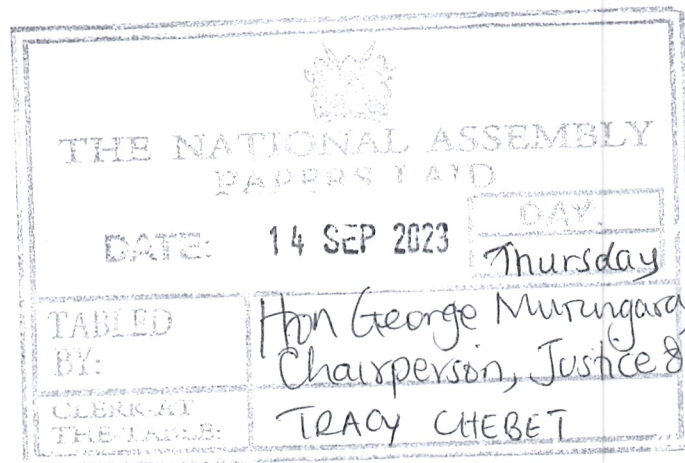 THE NATIONAL ASSEMBLY
PAPERS LAID
DATE: 14 SEP 2023
DAY:
Thursday
TABLED BY:
Hon George Murungara
Chairperson, Justice &
CLERK-AT THE-TABLE:
TRACY CHEBET